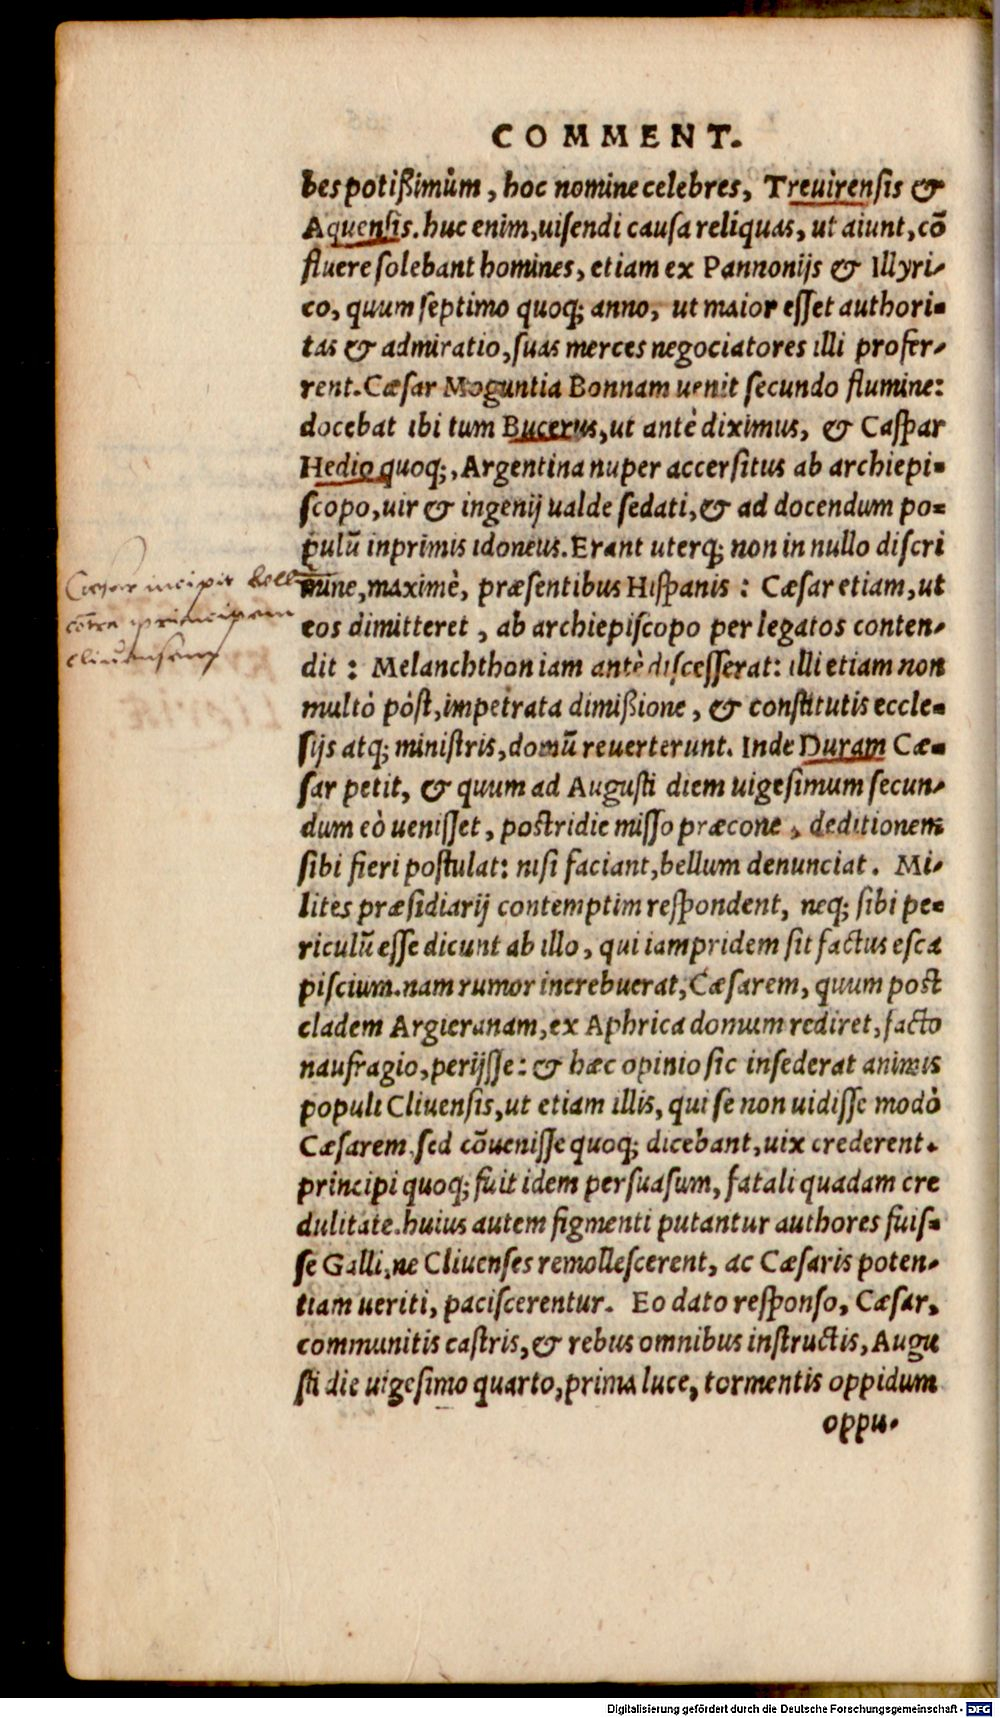 COMMENT.
bes potißimùm, hoc nomine celebres, Treuirensis &
Aquensis. huc enim, uisendi causa reliquas, ut aiunt, cō
fluere solebant homines, etiam ex Pannonijs & Illyri-
co, quum septimo quoq; anno, ut maior esset authori-
tas & admiratio, suas merces negociatores illi profer-
rent. Cæsar Moguntia Bonnam uenit secundo flumine:
docebat ibi tum Bucerus, ut antè diximus, & Caspar
Hedio quoq;, Argentina nuper accersitus ab archiepi-
scopo, uir & ingenij ualde sedati, & ad docendum po-
pulū inprimis idoneus. Erant uterq; non in nullo discri
mine, maximè, præsentibus Hispanis: Cæsar etiam, ut
eos dimitteret, ab archiepiscopo per legatos conten-
dit: Melanchthon iam antè discesserat: illi etiam non
multò pòst, impetrata dimißione, & constitutis eccle-
sijs atq; ministris, domū reuerterunt. Inde Duram Cæ-
sar petit, & quum ad Augusti diem uigesimum secun-
dum eò uenisset, postridie misso præcone, deditionem
sibi fieri postulat: nisi faciant, bellum denunciat. Mi-
lites præsidiarij contemptim respondent, neq; sibi pe-
riculū esse dicunt ab illo, qui iampridem sit factus esca
piscium. nam rumor increbuerat, Cæsarem, quum post
cladem Argieranam, ex Aphrica domum rediret, facto
naufragio, perijsse: & hæc opinio sic insederat animis
populi Cliuensis, ut etiam illis, qui se non uidisse modò
Cæsarem, sed cōuenisse quoq; dicebant, uix crederent.
principi quoq; fuit idem persuasum, fatali quadam cre
dulitate. huius autem figmenti putantur authores fuis-
se Galli, ne Cliuenses remollescerent, ac Cæsaris poten-
tiam ueriti, paciscerentur. Eo dato responso, Cæsar,
communitis castris, & rebus omnibus instructis, Augu
sti die uigesimo quarto, prima luce, tormentis oppidum
oppu-
Cæsar incipit bellū
cōtra principem
cliuensem
Digitalisierung gefördert durch die Deutsche Forschungsgemeinschaft - DFG